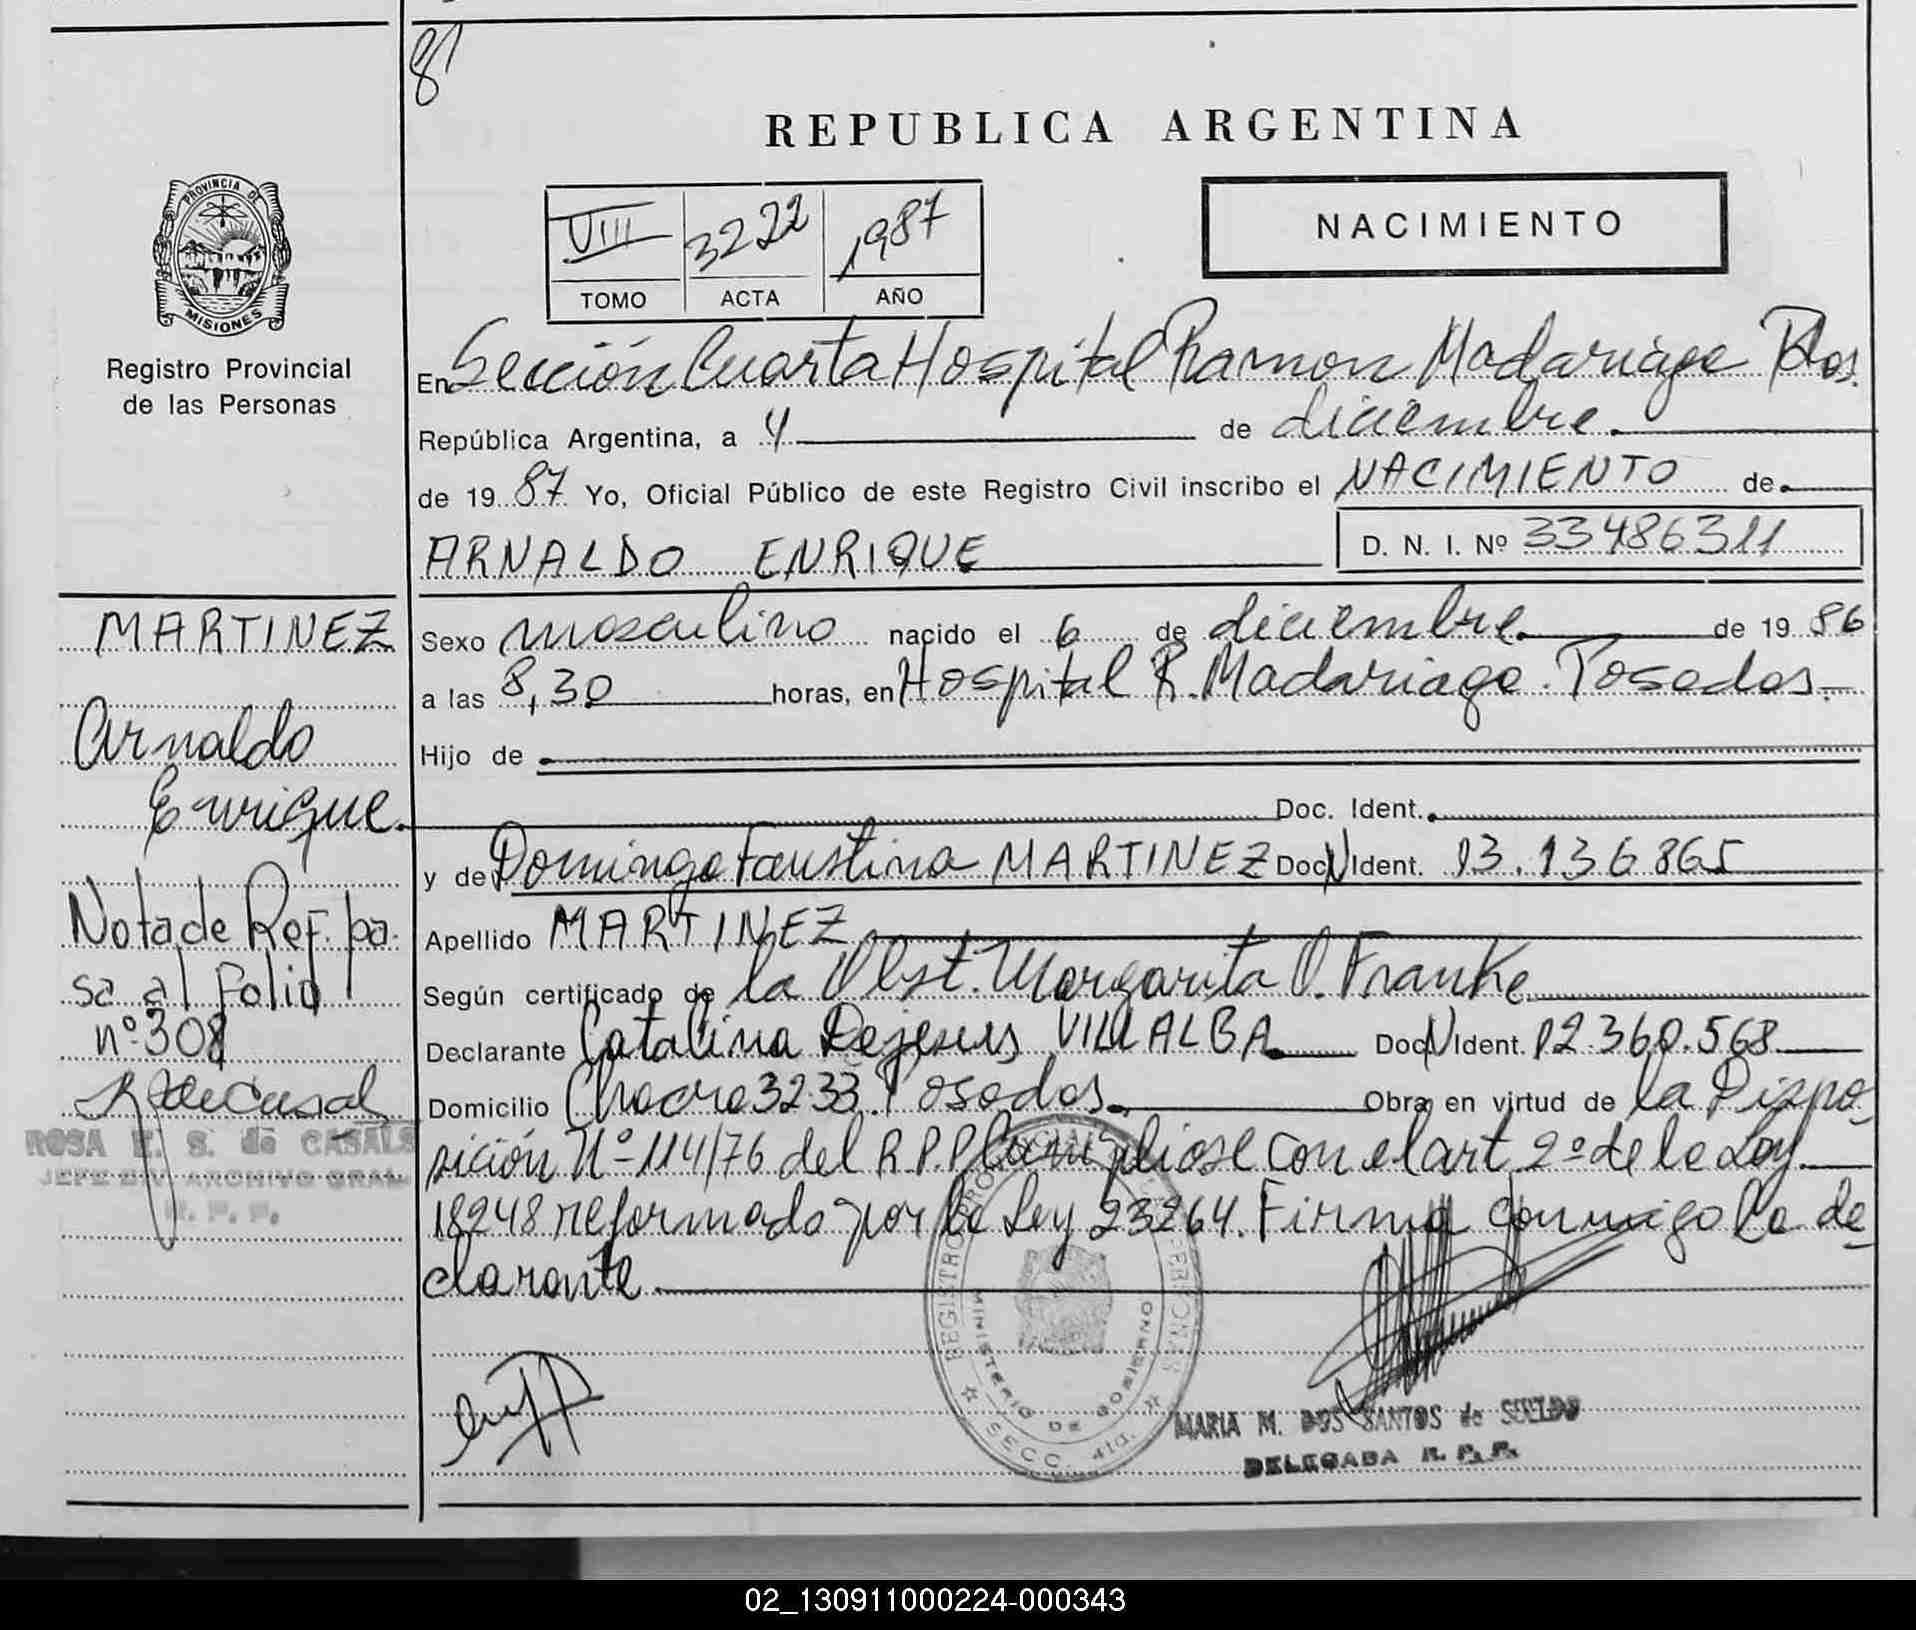 81
REPUBLICA ARGENTINA
PROVINCIA DE
MISIONES
Registro Provincial
de las Personas
VIII 3222 1987
TOMO ACTA AÑO
NACIMIENTO
En Sección Cuarta Hospital Ramon Madariaga Pdas.
República Argentina, a 4 de diciembre.
de 19 87 Yo, Oficial Público de este Registro Civil inscribo el NACIMIENTO de
ARNALDO ENRIQUE D. N. I. Nº 33486311
MARTINEZ
Arnaldo
Enrique.
Nota de Ref. pa-
sa al Folio
nº 308
R S de Casals
ROSA E. S. de CASALS
JEFE DIV. ARCHIVO GRAL.
R. P. P.
Sexo masculino nacido el 6 de diciembre de 19 86
a las 8,30 horas, en Hospital R. Madariaga. Posadas.
Hijo de
Doc. Ident.
y de Dominga Faustina MARTINEZ Doc N Ident. 13.136865
Apellido MARTINEZ
Según certificado de la Obst. Margarita O. Franke
Declarante Catalina Dejesus VILLALBA Doc N Ident. 12.360.568
Domicilio Chacra 32-33. Posadas. Obra en virtud de la Dispo-
sición Nº 114/76 del R.P.P. Cumpliose con el art. 2º de la Ley
18248 reformado por la Ley 23264. Firma conmigo la de-
clarante.
REGISTRO PROVINCIAL DE LAS PERSONAS
MINISTERIO DE GOBIERNO
SECC. 4ta.
MARIA M. DOS SANTOS de SUELDO
DELEGADA R. P. P.
02_130911000224-000343